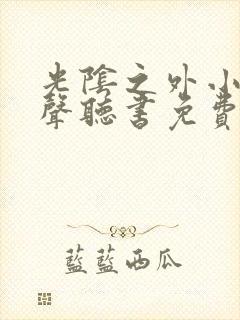 光陰之外小
聲聽書免費
藍藍西瓜